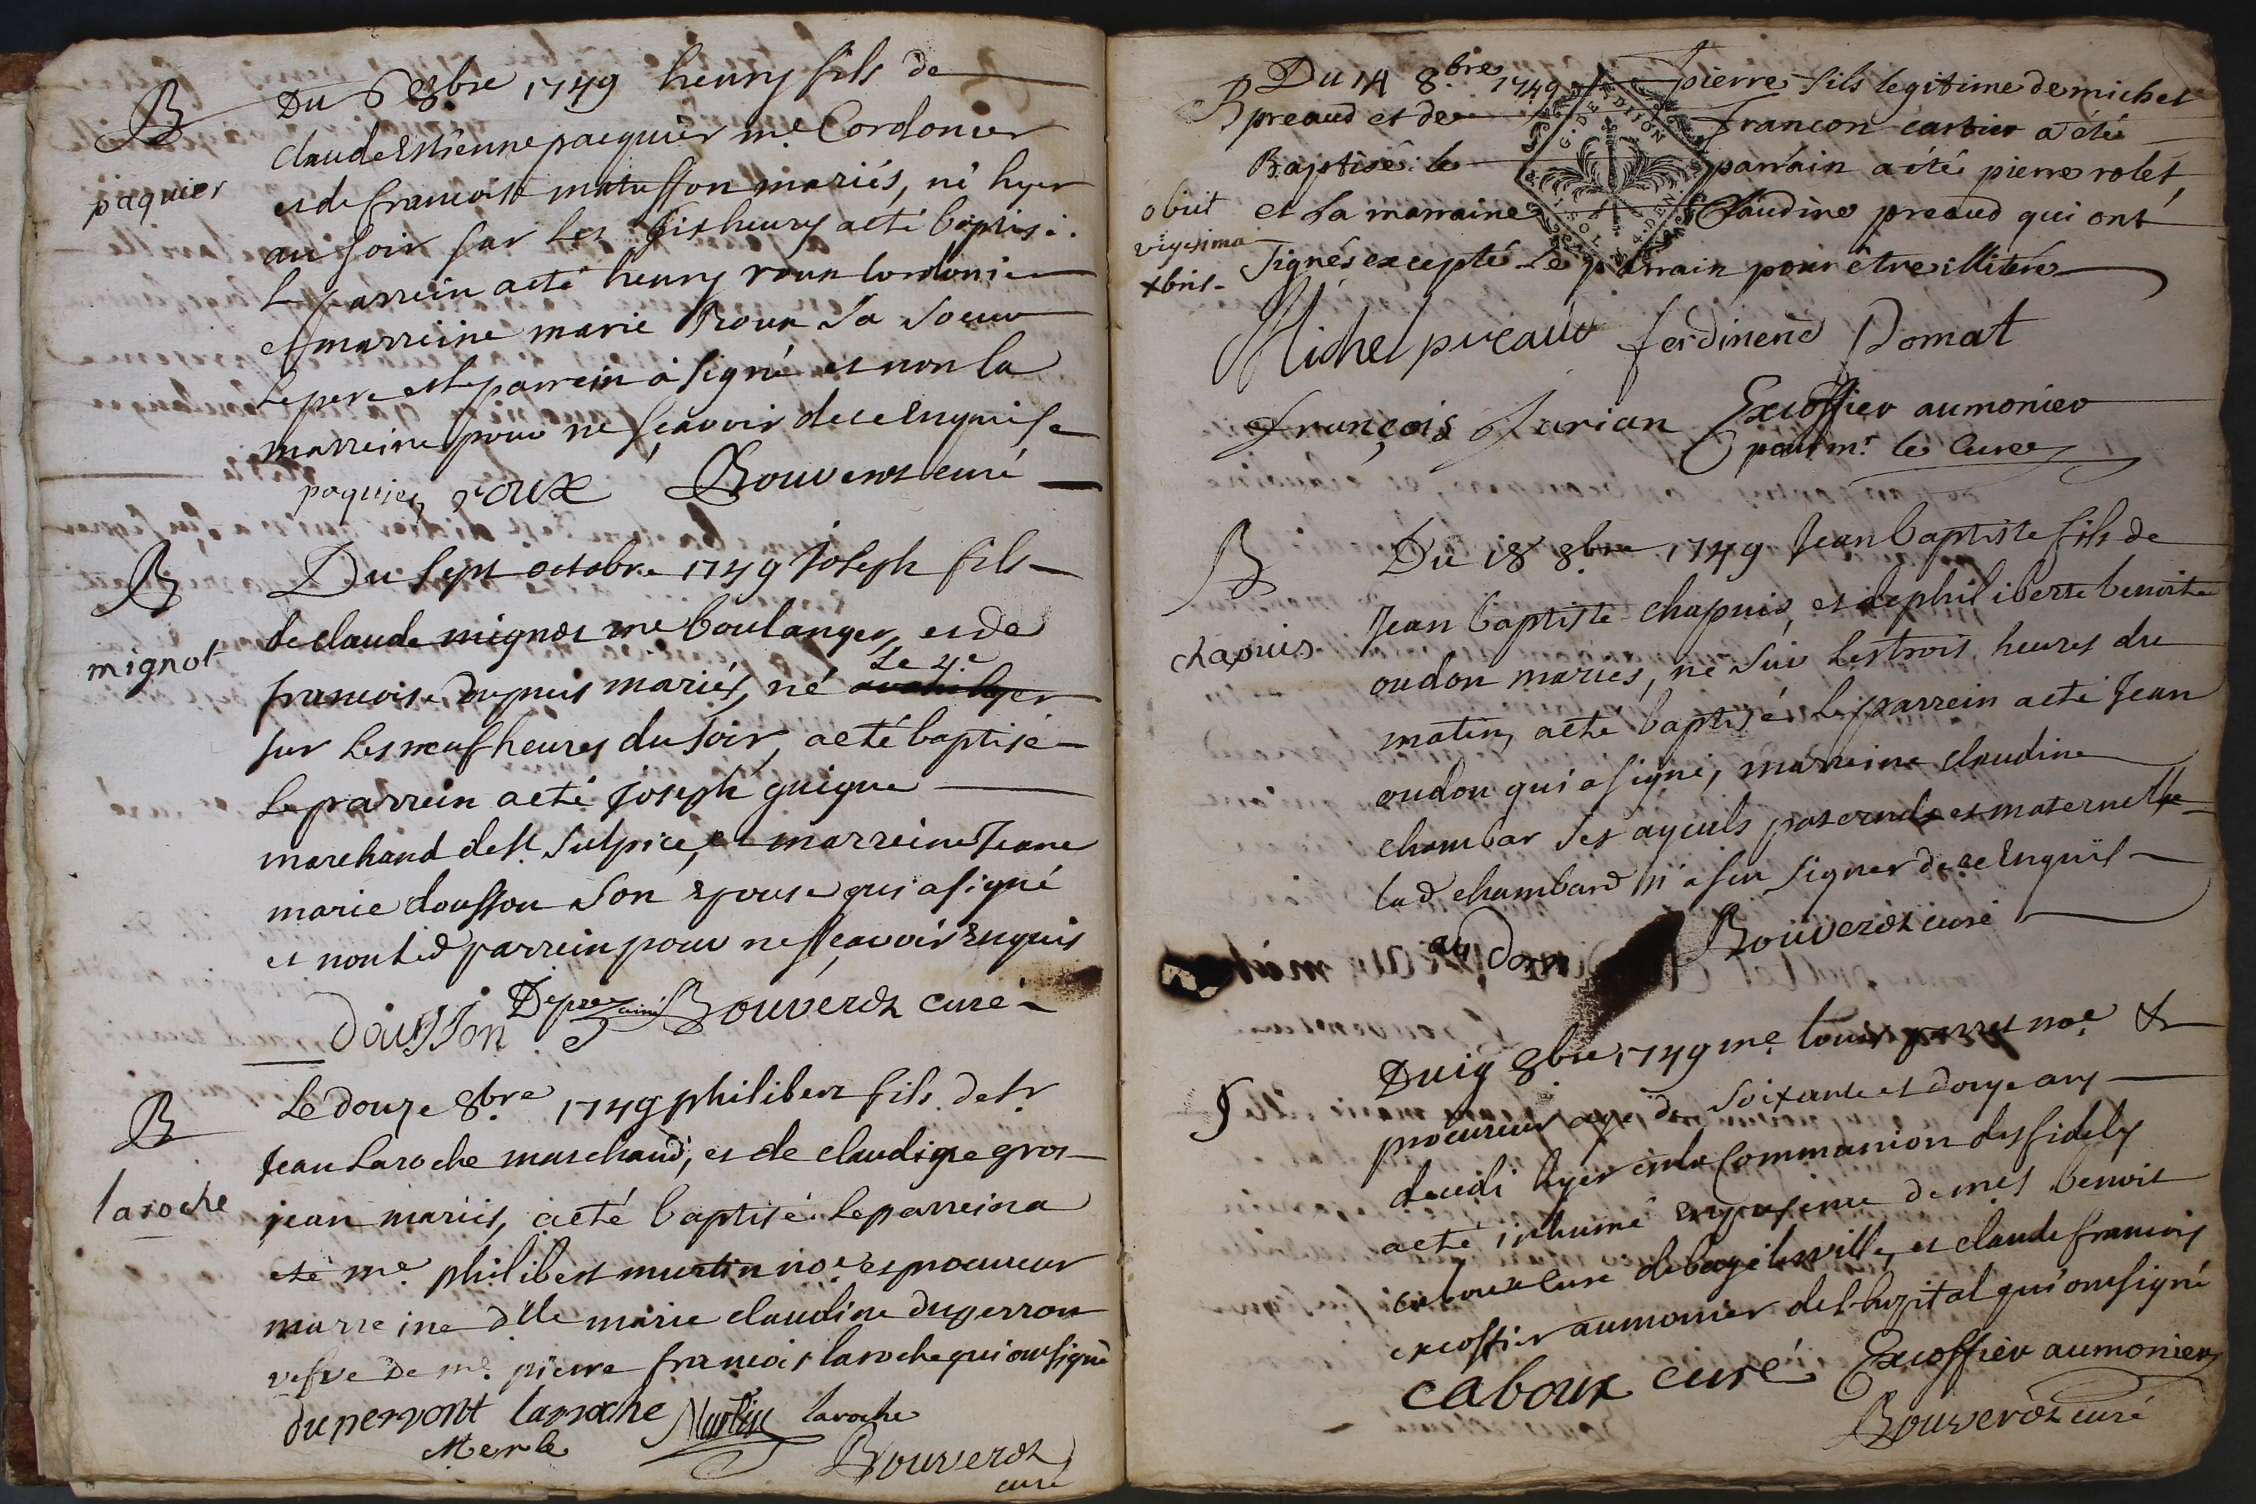 B
Du 6 8bre 1749 henry fils de
claude Estienne pacquier me Cordonier
paquier
et de francoise matusson mariés, né hyer
au soir sur les six heures a eté baptisé.
Le parrein a eté henry roux cordonier
et marreine marie Roux sa soeur
le pere et le parrein a signé et non la
marreine pour ne sçavoir de ce Enquise
paquier roux Bouverot curé
B
Du sept octobre 1749 Joseph fils
de claude mignot me boulanger, et de
mignot
francoise dupuis mariés, né le 4e
sur les neuf heures du soir, a eté baptisé
Le parrein a eté Joseph guigue
marchand de st Sulpice, et marreine Jeane
marie dousson son Epouse qui a signé
et non led parrein pour ne sçavoir Enquis
Dousson Bouverot curé
B
Le douze 8bre 1749 philibert fils de sr
Jean Laroche marchand, et de claudine gros
laroche
jean mariés, a eté baptisé. le parrein a
eté me philibert martin noe et procureur
marreine dlle marie claudine duperron
vefve de me pierre francois laroche qui ont signé
duperront laroche Martin laroche
Merle
Bouverot
curé
B
Du 14 8bre 1749 pierre fils legitime de michel
preaud et de francon cartier a été
Baptisé le parrain a été pierre rolet
obiit
et La marraine Claudine preaud qui ont
vigesima
signés excepté le parrain pour être illitéré
xbris
G. DE DIJON
1 SOL 4 DEN.
Michel preaud ferdinend Domat
François Jurian Excoffier aumonier
pour mr le Curé
B
Du 18 8bre 1749 Jean baptiste fils de
Jean baptiste chapuis, et de philiberte benoite
chapuis
oudon mariés, né sur les trois heures du
matin, a eté baptisé Le parrein a eté Jean
oudon qui a signé, marreine claudine
chambar ses ayeuls paternels et maternelle
lad chambard n'a sceu signer de ce Enquis
Bouverot curé
S
Du 19 8bre 1749 me Louis perret noe &
procureur agé de soixante et douze ans
decedé hyer en la Communion des fideles
a eté inhumé En presence de mes benoit
caboux curé de bagé la ville, et claude francois
excoffier aumonier de l'hopital qui ont signé
caboux curé Excoffier aumonier
Bouverot curé